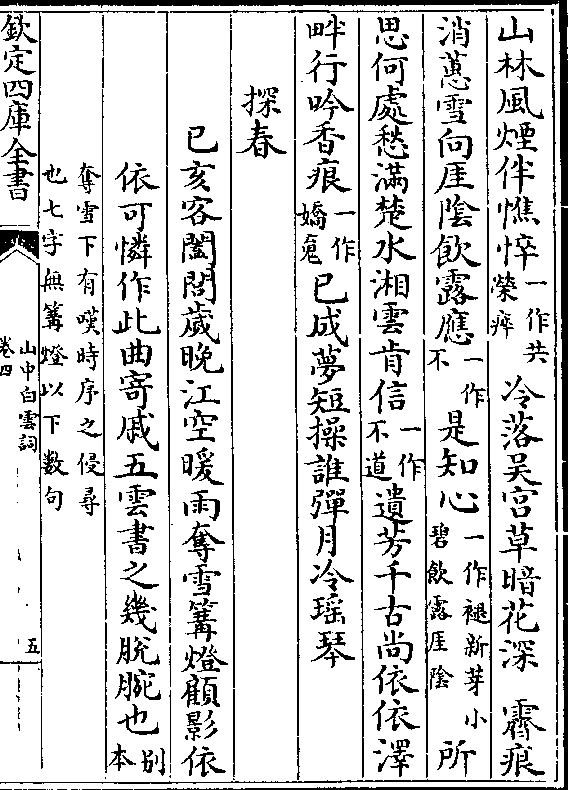 山林風煙伴憔悴一作共榮瘁冷落吳宮草暗花深 霽痕
消蕙雪向厓陰飲露應一作不是知心一作褪新芽小碧飲露厓陰所
思何處愁滿楚水湘雲肯信一作不道遺芳千古尚依依澤
畔行吟香痕一作嬌魂已成夢短操誰彈月冷瑶琴
探春
已亥客闔閭歲晚江空暖雨奪雪篝燈顧影依
依可憐作此曲寄戚五雲書之幾脫腕也别本
奪雪下有嘆時序之侵尋
也七字無篝燈以下數句
欽定四庫全書
山中白雲詞
卷四
五